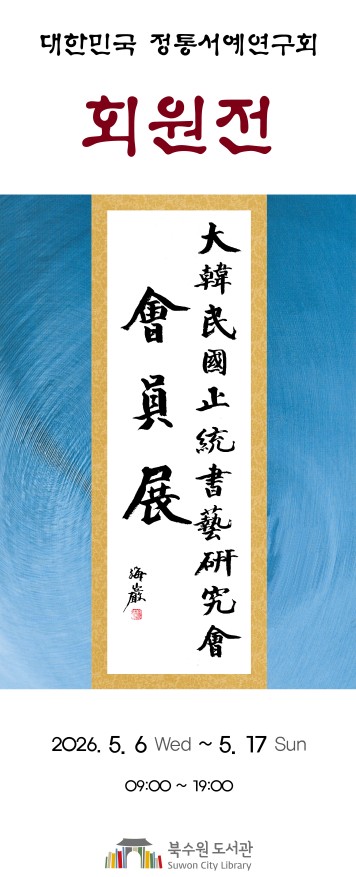 대한민국 정통서예연구회
회원전
大韓民國正統書藝硏究會
會員展
海巖
2026. 5. 6 Wed ~ 5. 17 Sun
09:00 ~ 19:00
북수원 도서관
Suwon City Library